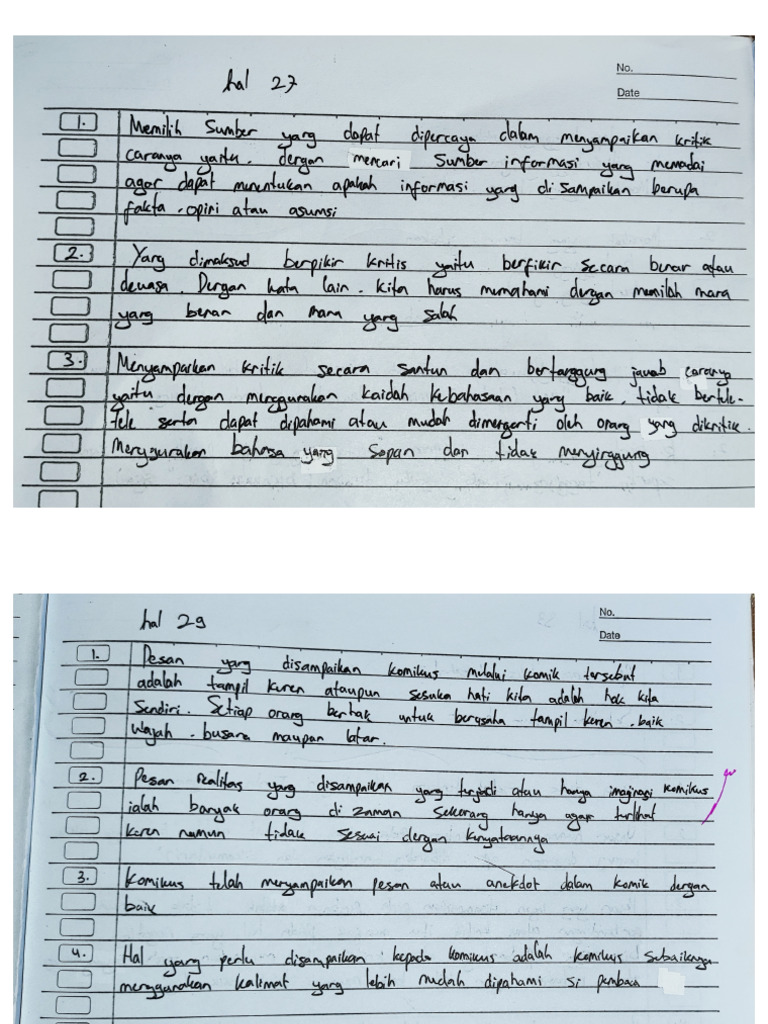 hal 27
No.
Date
1. Memilih Sumber yang dapat dipercaya dalam menyampaikan kritik
caranya yaitu. dengan mencari sumber informasi yang memadai
agar dapat menentukan apakah informasi yang di sampaikan berupa
fakta. opini atau asumsi
2. Yang dimaksud berpikir kritis yaitu berfikir secara benar atau
dewasa. Dengan kata lain. kita harus memahami dengan memilah mana
yang benar dan mana yang salah
3. Menyampaikan kritik secara santun dan bertanggung jawab caranya
yaitu dengan menggunakan kaidah kebahasaan yang baik, tidak bertele-
tele serta dapat dipahami atau mudah dimengerti oleh orang yang dikritik.
Menggunakan bahasa yang sopan dan tidak menyinggung
hal 29
No.
Date
1. Pesan yang disampaikan komikus melalui komik tersebut
adalah tampil keren ataupun sesuka hati kita adalah hak kita
sendiri. Setiap orang berhak untuk berusaha tampil keren. baik
wajah. busana maupun latar.
2. Pesan realitas yang disampaikan yang terjadi atau hanya imaginasi komikus
ialah banyak orang di zaman sekarang hanya agar terlihat
keren namun tidak sesuai dengan kenyataannya
3. Komikus telah menyampaikan pesan atau anekdot dalam komik dengan
baik
4. Hal yang perlu disampaikan kepada komikus adalah komikus sebaiknya
menggunakan kalimat yang lebih mudah dipahami si pembaca